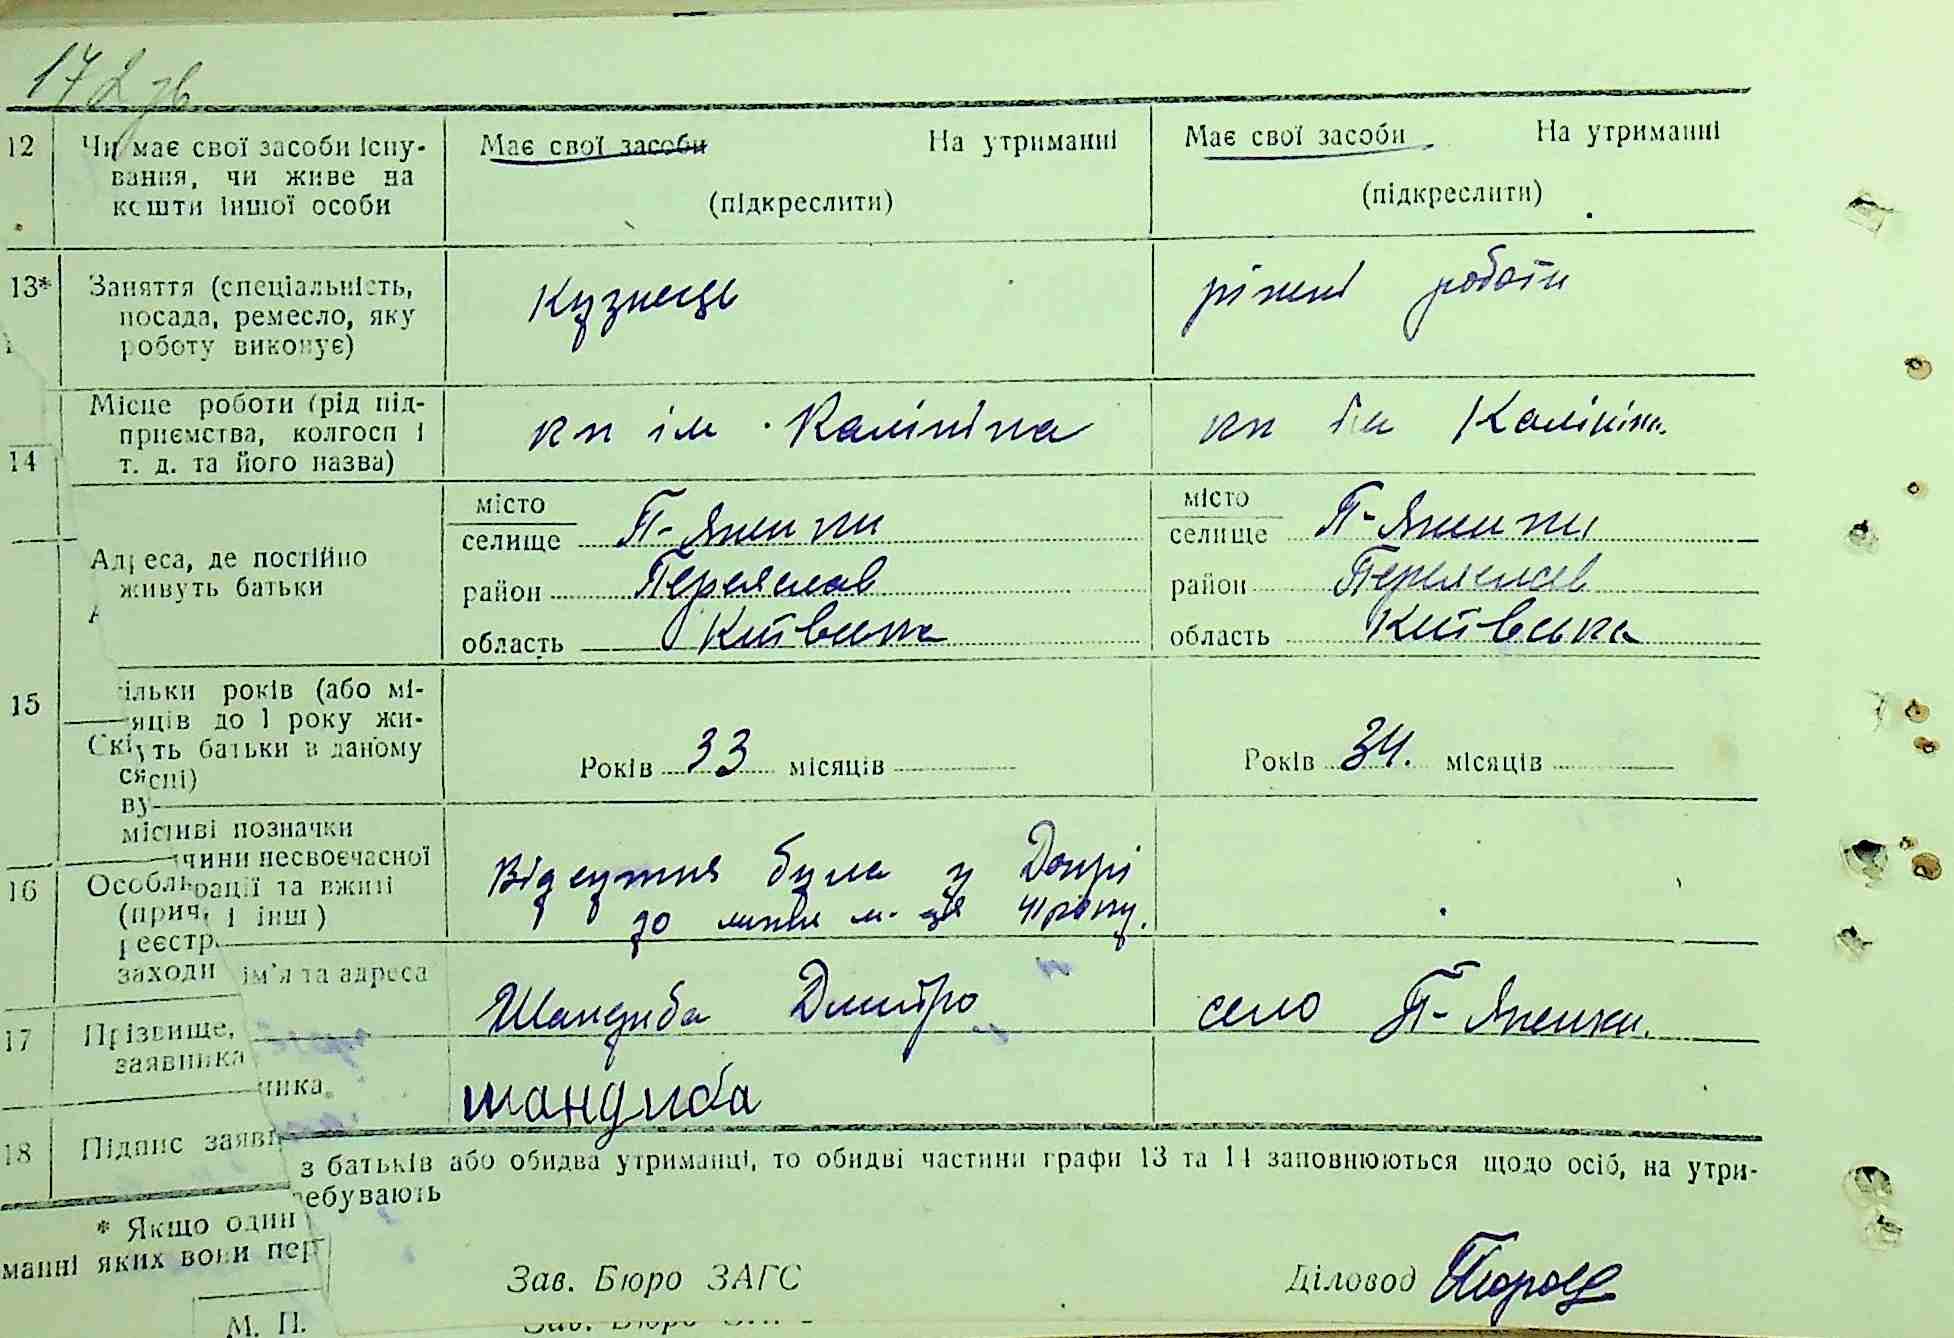 172 зв
12 Чи має свої засоби існу-
вання, чи живе на
кошти іншої особи
Має свої засоби На утриманні
(підкреслити)
Має свої засоби На утриманні
(підкреслити)
13* Заняття (спеціальність,
посада, ремесло, яку
роботу виконує)
Кузнець
ріжні роботи
Місце роботи (рід під-
приємства, колгосп і
т. д. та його назва)
кп ім Калініна
кп ім Калініна
14
Адреса, де постійно
живуть батьки
місто
селище П-Яненки
район Переяслав
область Київська
місто
селище П-Яненки
район Переяслав
область Київська
15
ільки років (або мі-
яців до 1 року жи-
Скі уть батьки в даному
ся сні)
ву
Років 33 місяців
Років 34. місяців
міс иві позначки
чини несвоєчасної
16 Особли рації та вжиті
(прич і інш)
реєстр
заходи
Відсутня була у
до м-ця 41 року.
ім'я та адреса
17 Прізвище,
заявника
Шандиба Дмитро
село П-Яненки.
ника.
18 Підпис заяв
шандиба
з батьків або обидва утриманці, то обидві частини графи 13 та 14 заповнюються щодо осіб, на утри-
ребувають
* Якщо один
манні яких вони пер
Зав. Бюро ЗАГС
Діловод
М. П.
Зав. Бюро ЗАГС